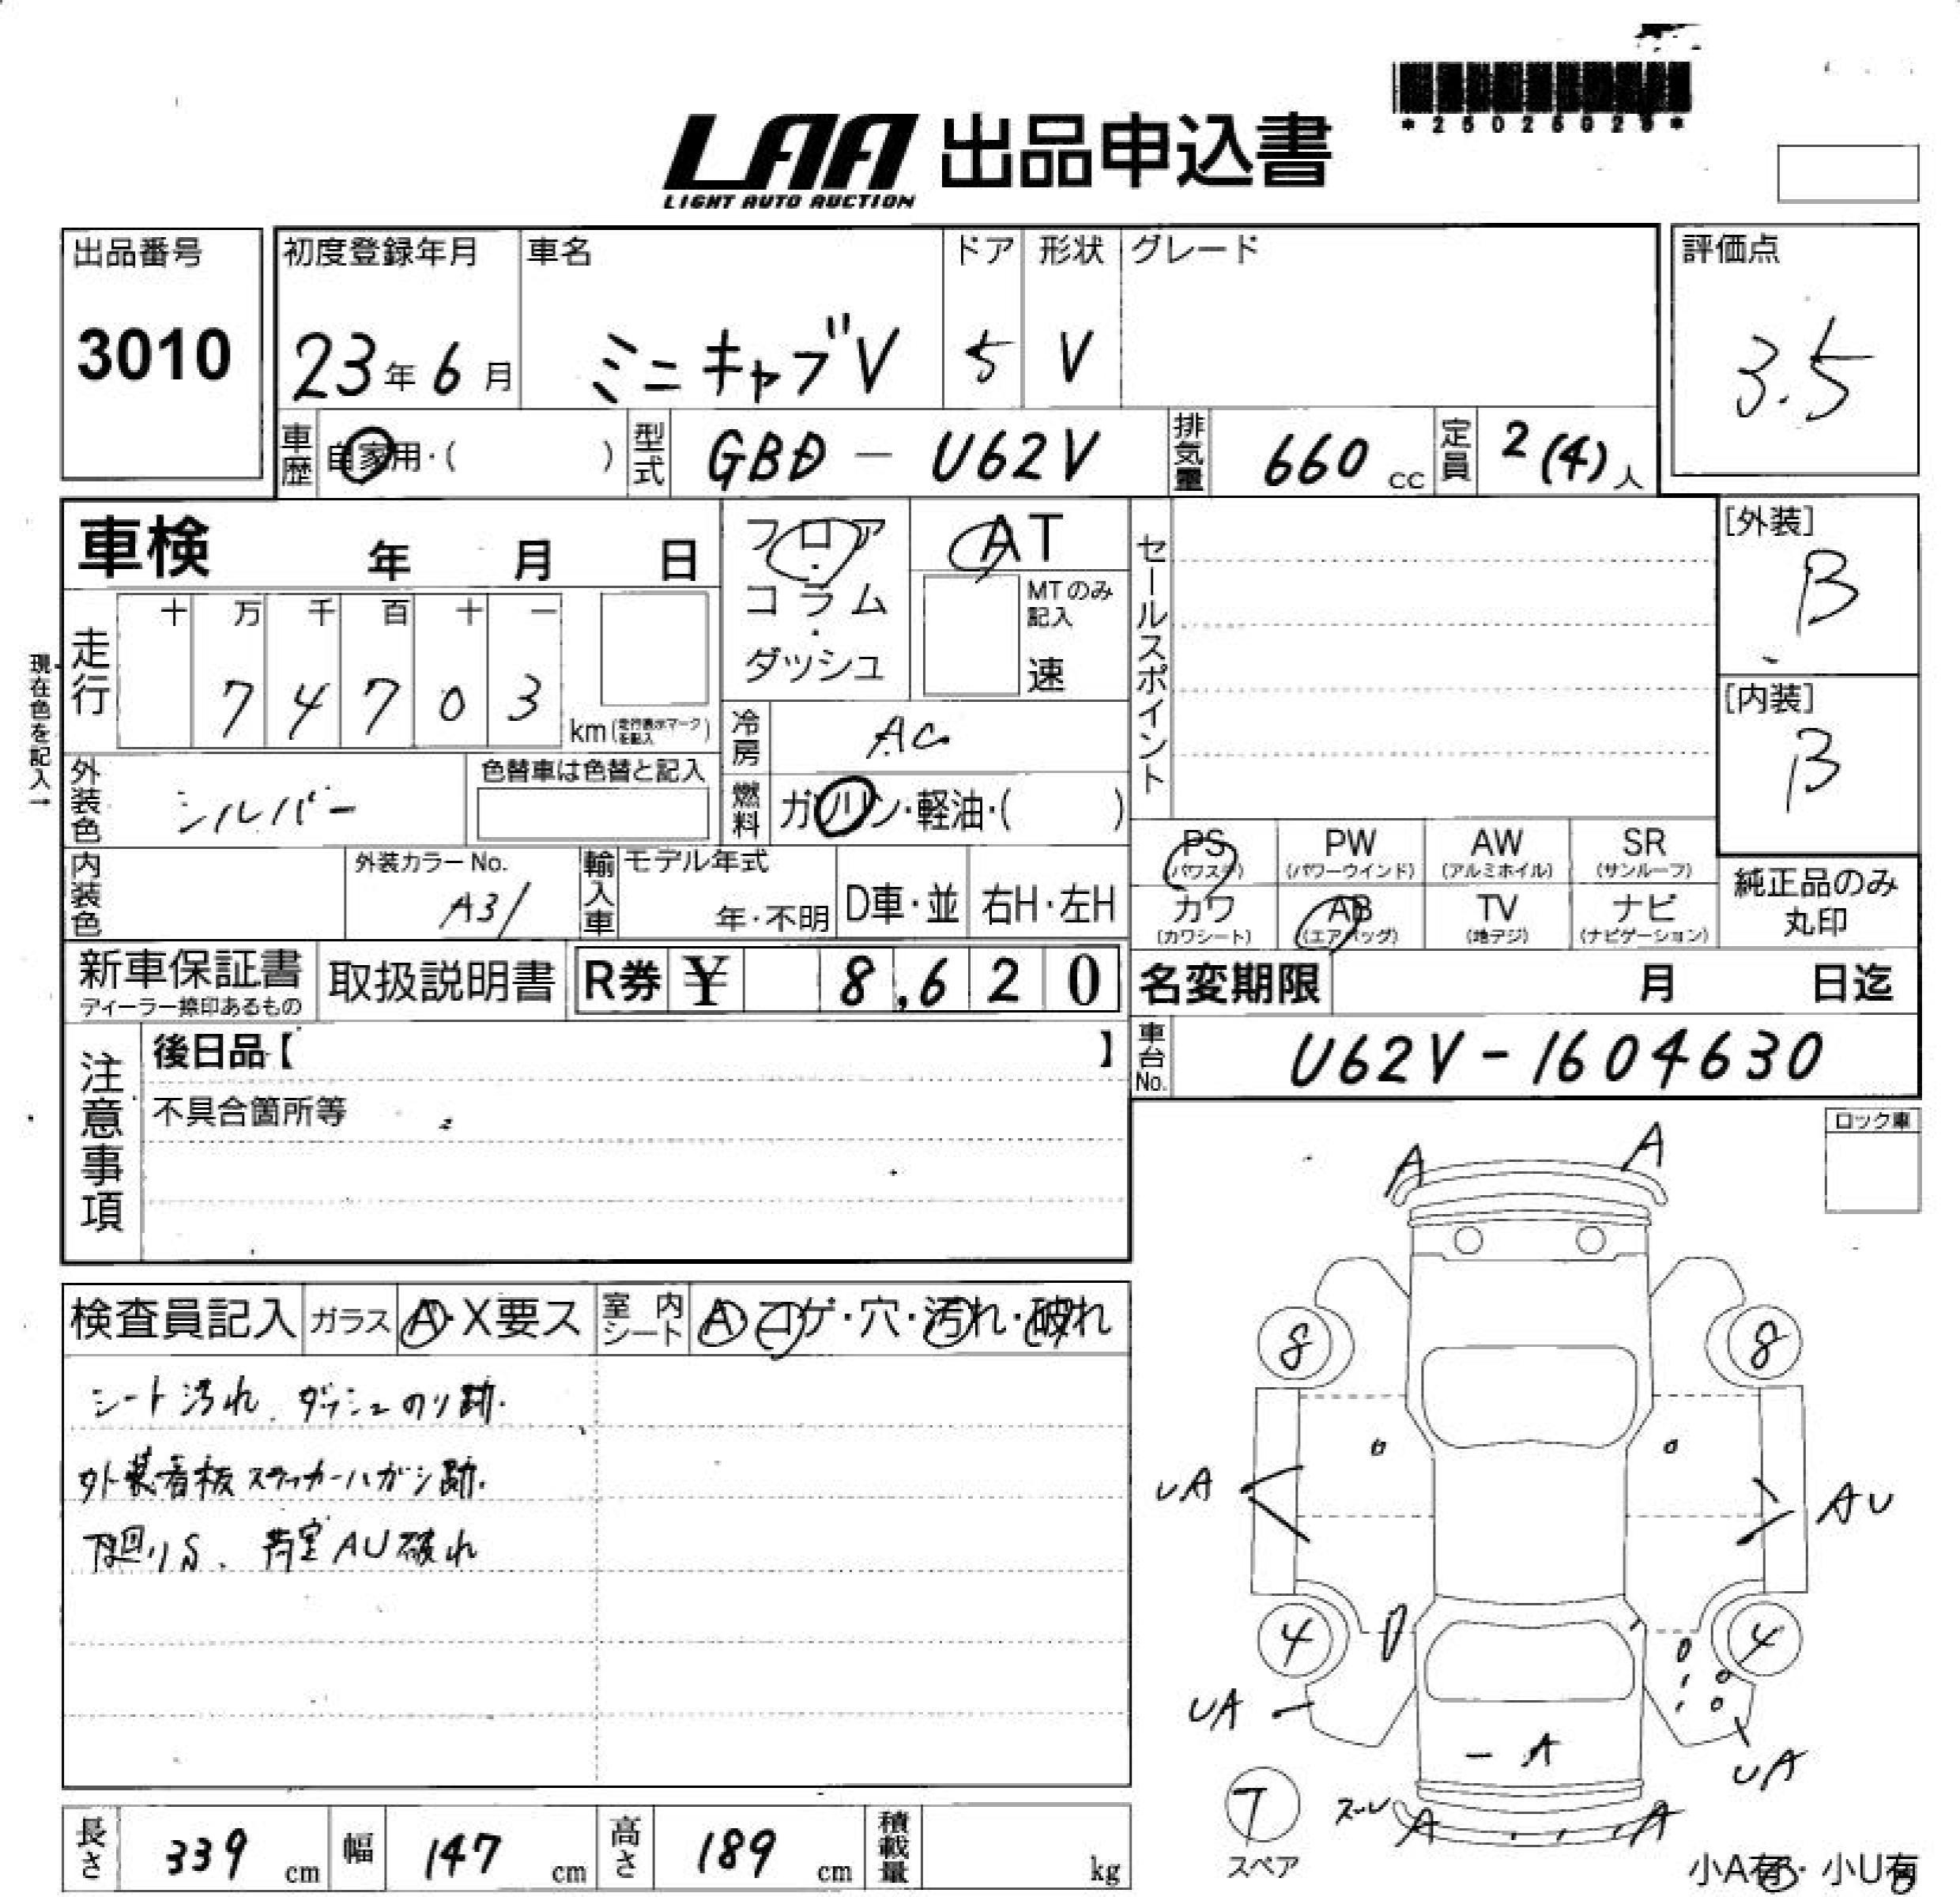 LAA 出品申込書
LIGHT AUTO AUCTION
出品番号 初度登録年月 車名 ドア 形状 グレード 評価点
3010 23年6月 ミニキャブV 5 V 3.5
車歴 自家用・( ) 型式 GBD-U62V 排気量 660 cc 定員 2(4)人
車検 年 月 日
フロア・コラム・ダッシュ
AT
MTのみ記入
速
セールスポイント
[外装]
B
[内装]
B
現在色を記入→
走行 十 万 千 百 十 一
7 4 7 0 3 km (走行表示マークを記入)
冷房 AC
外装色 シルバー 色替車は色替と記入
燃料 ガソリン・軽油・( )
PS PW AW SR
(パワステ) (パワーウインド) (アルミホイル) (サンルーフ)
カワ AB TV ナビ
(カワシート) (エアバッグ) (地デジ) (ナビゲーション)
純正品のみ
丸印
内装色 外装カラーNo. 輸入車 モデル年式
A31 年・不明 D車・並 右H・左H
新車保証書 取扱説明書 R券 ¥ 8,620 名変期限 月 日迄
ディーラー捺印あるもの
注意事項 後日品【 】
車台No. U62V-1604630
不具合箇所等
ロック車
検査員記入 ガラス A・X要ス 室内シート A コゲ・穴・汚れ・破れ
シート汚れ、ダッシュのり跡.
外装看板ステッカーハガシ跡.
下廻りS、荷室AU破れ
A A
8 8
UA AU
4 4
UA UA
A
T
スペア
スレ A A
小A有・小U有
長さ 339 cm 幅 147 cm 高さ 189 cm 積載量 kg